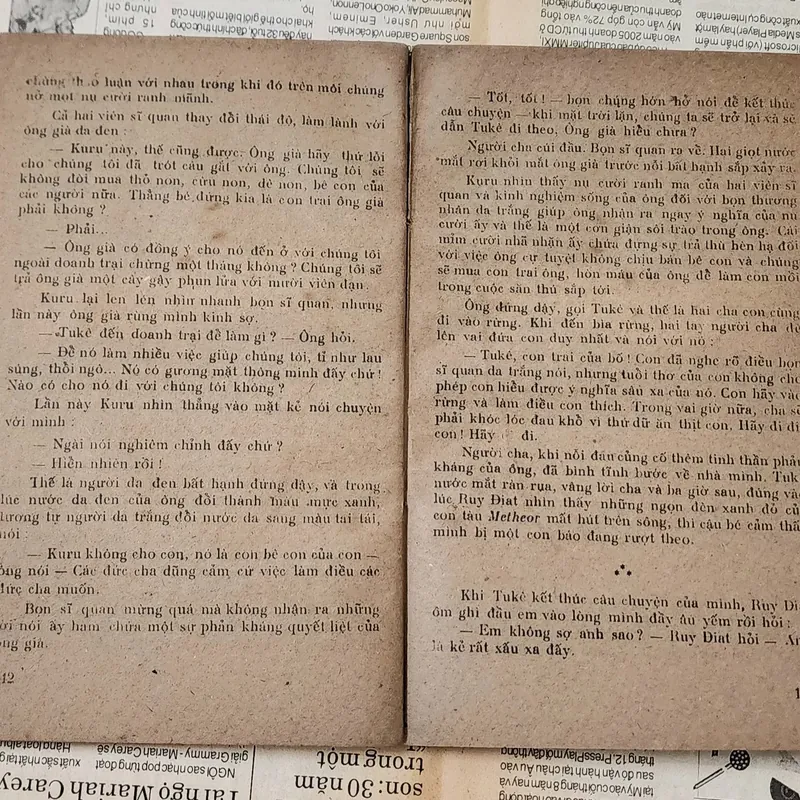 chúng thảo luận với nhau trong khi đó trên môi chúng
nở một nụ cười ranh mãnh.
Cả hai viên sĩ quan thay đổi thái độ, làm lành với
ông già da đen :
— Kuru này, thế cũng được. Ông già hãy thứ lỗi
cho chúng tôi đã trót cáu gắt với ông. Chúng tôi sẽ
không đòi mua thỏ non, cừu non, dê non, bê con của
các người nữa. Thằng bé đứng kia là con trai ông già
phải không ?
— Phải...
— Ông già có đồng ý cho nó đến ở với chúng tôi
ngoài doanh trại chừng một tháng không ? Chúng tôi sẽ
trả ông già một cây gậy phun lửa với mười viên đạn.
Kuru lại len lén nhìn nhanh bọn sĩ quan, nhưng
lần này ông già rùng mình kinh sợ.
— Tukê đến doanh trại để làm gì ? — Ông hỏi.
— Để nó làm nhiều việc giúp chúng tôi, tỉ như lau
súng, thổi ngô... Nó có gương mặt thông minh đấy chứ !
Nào có cho nó đi với chúng tôi không ?
Lần này Kuru nhìn thẳng vào mặt kẻ nói chuyện
với mình :
— Ngài nói nghiêm chỉnh đấy chứ ?
— Hiển nhiên rồi !
Thế là người da đen bất hạnh đứng dậy, và trong
lúc nước da đen của ông đổi thành màu mực xanh,
tương tự người da trắng đổi nước da sang màu tái tái,
nói :
— Kuru không cho con, nó là con bê con của con —
ông nói — Các đức cha dũng cảm, cứ việc làm điều các
đức cha muốn.
Bọn sĩ quan mừng quá mà không nhận ra những
lời nói ấy hàm chứa một sự phản kháng quyết liệt của
ông già.
12
— Tốt, tốt ! — bọn chúng hớn hở nói để kết thúc
câu chuyện — khi mặt trời lặn, chúng ta sẽ trở lại và sẽ
dẫn Tukê đi theo, Ông già hiểu chưa ?
Người cha cúi đầu. Bọn sĩ quan ra về. Hai giọt nước
mắt rơi khỏi mắt ông già trước nỗi bất hạnh sắp xảy ra.
Kuru nhìn thấy nụ cười ranh ma của hai viên sĩ
quan và kinh nghiệm sống của ông đối với bọn thương
nhân da trắng giúp ông nhận ra ngay ý nghĩa của nụ
cười ấy và thế là một cơn giận sôi trào trong ông. Cái
mỉm cười nhã nhặn ấy chứa đựng sự trả thù hèn hạ đối
với việc ông cự tuyệt không chịu bán bê con và chúng
sẽ mua con trai ông, hòn máu của ông để làm con mồi
trong cuộc săn thú sắp tới.
Ông đứng dậy, gọi Tukê và thế là hai cha con cùng
đi vào rừng. Khi đến bìa rừng, hai tay người cha để
lên vai đứa con duy nhất và nói với nó :
— Tukê, con trai của bố ! Con đã nghe rõ điều bọn
sĩ quan da trắng nói, nhưng tuổi thơ của con không cho
phép con hiểu được ý nghĩa sâu xa của nó. Con hãy vào
rừng và làm điều con thích. Trong vài giờ nữa, cha sẽ
phải khóc lóc đau khổ vì thú dữ ăn thịt con. Hãy đi đi
con ! Hãy đi.
Người cha, khi nỗi đau củng cố thêm tinh thần phản
kháng của ông, đã bình tĩnh bước về nhà mình. Tukê
nước mắt ràn rụa, vâng lời cha và ba giờ sau, đúng vào
lúc Ruy Điat nhìn thấy những ngọn đèn xanh đỏ của
con tàu Metheor mất hút trên sông, thì cậu bé cảm thấy
mình bị một con báo đang rượt theo.
Khi Tukê kết thúc câu chuyện của mình, Ruy Điat
ôm ghì đầu em vào lòng mình đầy âu yếm rồi hỏi :
— Em không sợ anh sao ? — Ruy Điat hỏi — Anh
là kẻ rất xấu xa đấy.
son: 30 năm
trong một
Tái ngộ Mariah Carey